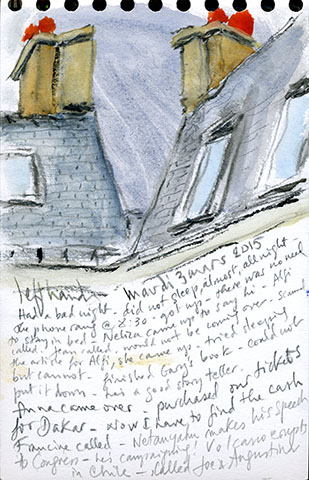 lefthand - mardi 3 mars 2015
Had a bad night - did not sleep, almost, all night
the phone rang @ 8:30 - got up - there was no need
to stay in bed - Nelica came up to say hi - Alfi
called, Jean called - would not be coming over - scanned
the article for Alfi, she came up - tried sleeping
but cannot - finished Gary's book - could not
put it down - he's a good story teller.
Anna came over - purchased our tickets
for Dakar - now I have to find the cash
Francine called - Netanyahu makes his speech
to Congress - he's campaigning! Volcano erupts
in Chile - called Joe & Augustin